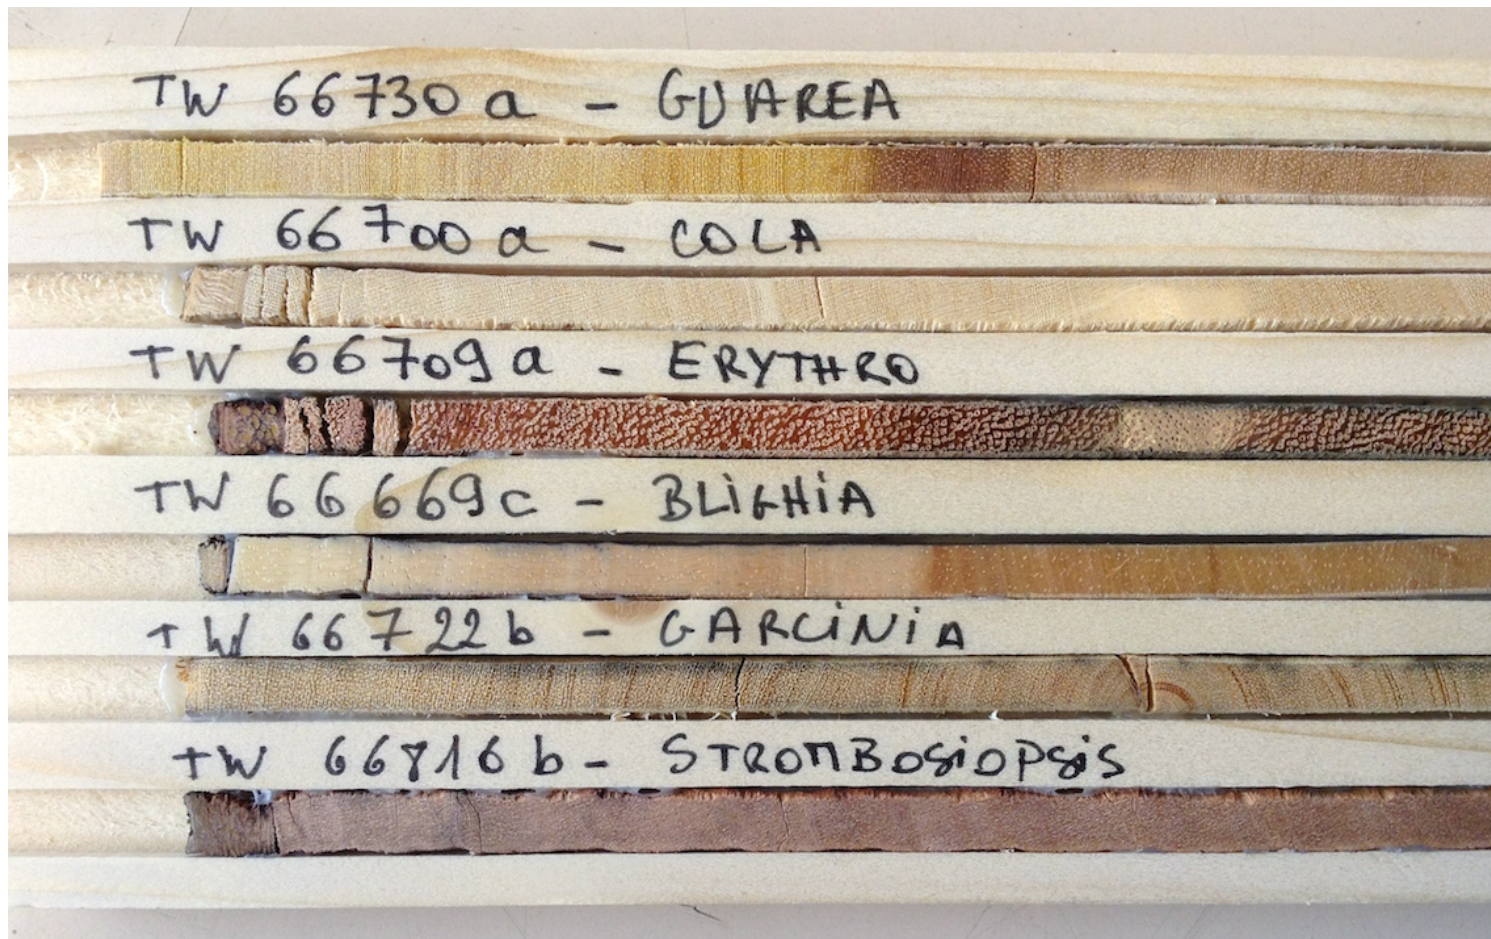 TW 66730 a - GUAREA
TW 66700 a - COLA
TW 66709 a - ERYTHRO
TW 66669c - BLiGHiA
TW 66722 b - GARCiNiA
TW 66816 b - STROMBOSiOPSiS